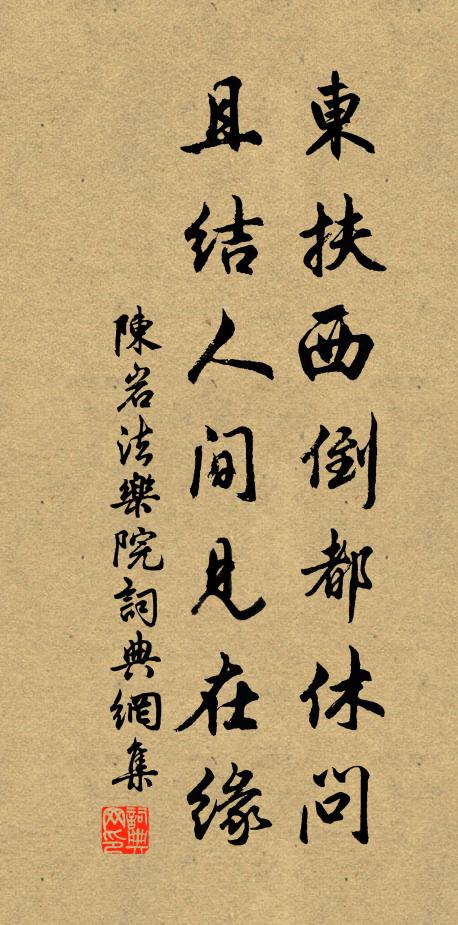 東扶西倒都休問
且结人間見在緣
陳岩法樂院詞典網集
詞典网印